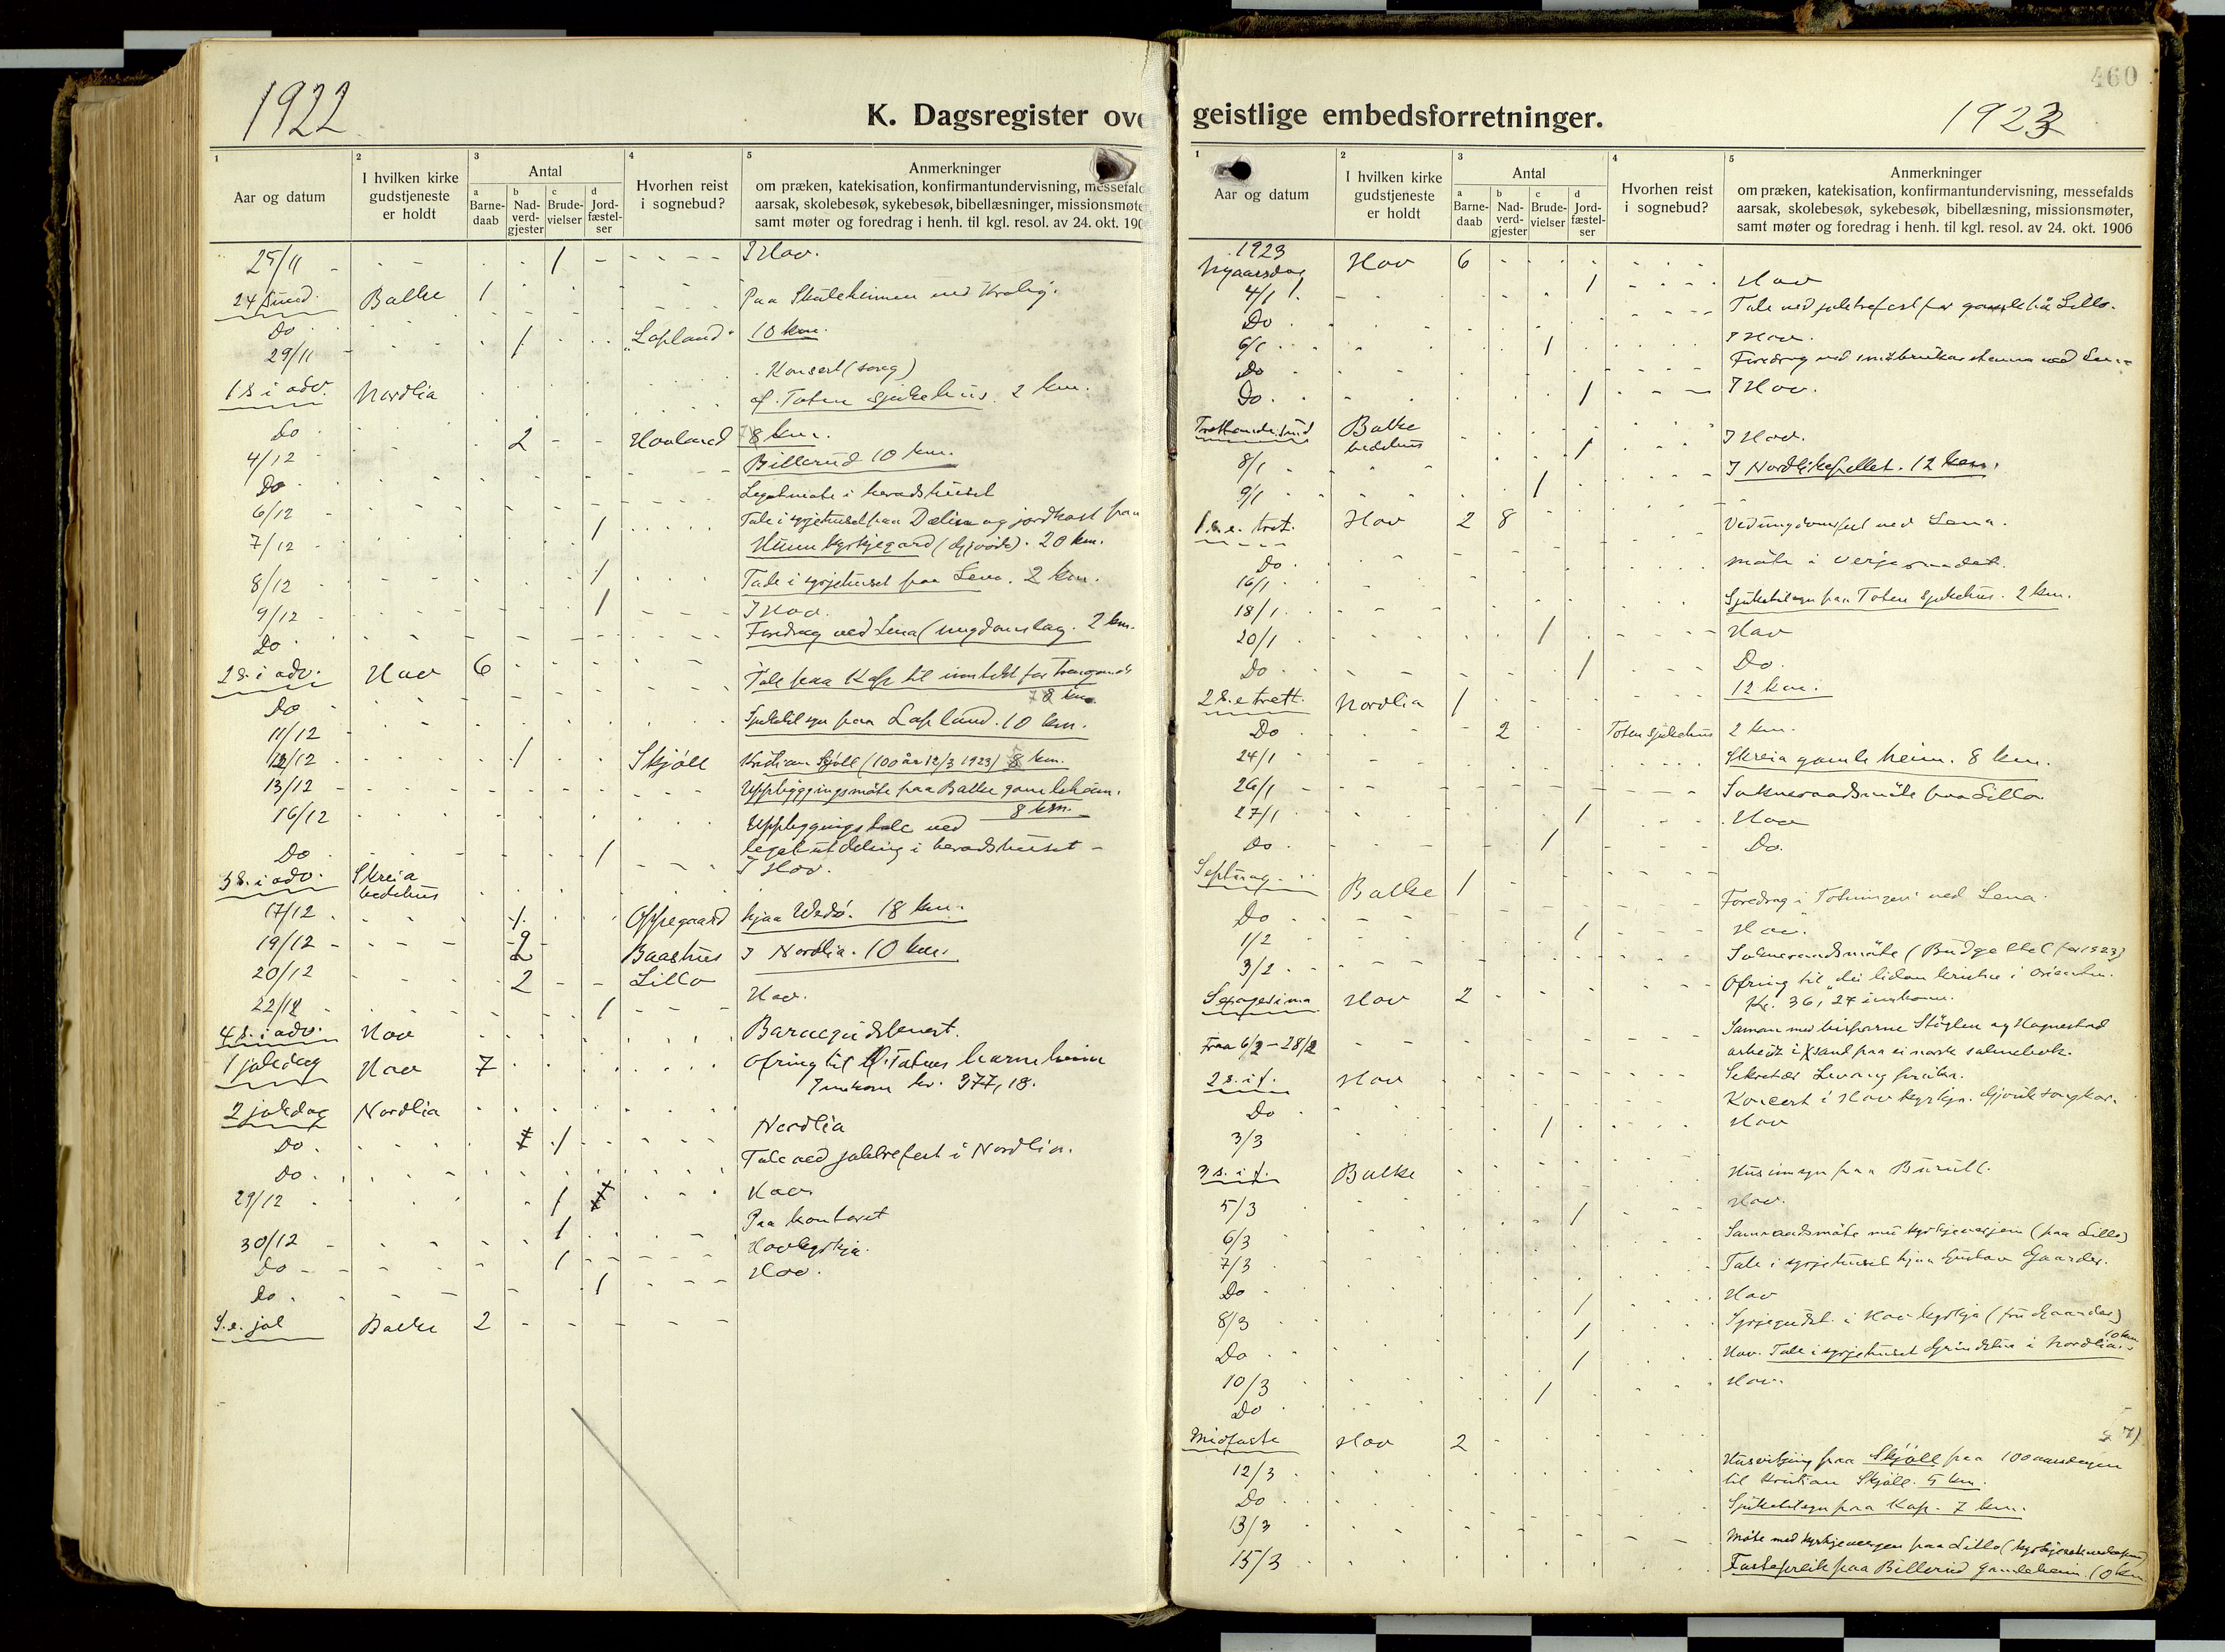 1922
K. Dagsregister ove
1
Aar og datum
2
I hvilken kirke
gudstjeneste
er holdt
3
Antal
a
Barne-
daab
b
Nad-
verd-
gjester
c
Brude-
vielser
d
Jord-
fæstel-
ser
4
Hvorhen reist
i sognebud?
5
Anmerkninger
om præken, katekisation, konfirmantundervisning, messefald
aarsak, skolebesøk, sykebesøk, bibellæsninger, missionsmøte
samt møter og foredrag i henh. til kgl. resol. av 24. okt. 190
25/11 1 I Hov.
24 sund. Balke 1 Paa Skuleheimen ved
Do
29/11 1 Lapland 10 km.
1 s. i adv. Nordlia Konsert (song)
Do Toten sjukehus. 2 km.
4/12 2 Hovland 8 km.
Do Billerud 10 km.
6/12 Legatmøte i heradshuset
7/12 1 Tale i syrjehuset paa Dælin og jordkast paa
Hunn kyrkjegard (Gjøvik). 20 km.
8/12 1 Tale i syrjehuset paa Lena. 2 km.
9/12 1 I Hov.
Do Foredrag ved Lena (ungdomslag. 2 km.
2 s. i adv. Hov 6
Do Tale paa Kap til inntekt for
8 km.
11/12 Sjuketilsyn paa Lapland. 10 km.
12/12 1 Skjöll Kristian Skjöll (100 år 12/3 1923) 8 km.
13/12 Uppbyggingsmöte paa Balke gamleheim.
8 km.
16/12 Uppbyggingstale ved
legatutdeling i heradshuset -
Do 1 I Hov.
3 s. i adv. Skreia
bedehus
17/12 1 Oppegaard hjaa Wedö. 18 km.
19/12 2 Baashus I Nordlia. 10 km.
20/12 2 Lillo
22/12 1 Hov.
4 s. i adv. Hov Barnegudstenest.
1 joledag Hov 7 Ofring til Ø. Totens barneheim
Innkom kr. 377,18.
2 joledag Nordlia
Do 1 Nordlia
Do Tale ved joletrefest i Nordlia.
29/12 1 Hov
30/12 1 Paa kontoret
Do 1 Hovkyrkja.
Do 1 Hov.
S. e. jol Balke 2
460
geistlige embedsforretninger.
1923
1
Aar og datum
2
I hvilken kirke
gudstjeneste
er holdt
3
Antal
a
Barne-
daab
b
Nad-
verd-
gjester
c
Brude-
vielser
d
Jord-
fæstel-
ser
4
Hvorhen reist
i sognebud?
5
Anmerkninger
om præken, katekisation, konfirmantundervisning, messefalds
aarsak, skolebesøk, sykebesøk, bibellæsning, missionsmøter,
samt møter og foredrag i henh. til kgl. resol. av 24. okt. 1906
1923
Nyaarsdag Hov 6
4/1 1 Hov
Do Tale ved joletrefest for gamle på Lillo.
6/1 1 I Hov.
Do Foredrag ved
Do 1 I Hov.
Trettende. sund Balke
bedehus
8/1 1 I Hov.
9/1 1 I Nordlikapellet. 12 km.
1. s. e. tret. Hov 2 8
Do Ved ungdomsfest ved Lena.
16/1 møte i verjeraadet.
18/1 Sjuketilsyn paa Toten Sjukehus. 2 km.
20/1 1 Hov
Do 1 Do.
2 s. e. trett. Nordlia 1 12 km.
Do 2 Toten sjukehus 2 km.
24/1 Skreia gamleheim. 8 km.
26/1 Sokneraadsmöte paa Lillo
27/1 1 Hov
Do 1 Do.
Septuag. Balke 1
Do Foredrag i "Totningen" ved Lena.
1/2 1 Hov.
3/2 Soknеraadsmöte (Budgettet for 1923)
Sexagesima Hov 2 Ofring til "dei lidan kristne i orienten.
Kr. 36,27 innkom.
Fraa 6/2 - 28/2 Saman med bisparne Stöylen og Hognestad
arbeidt i Krsand paa ei norsk salmebok.
2 s. i f. Hov Sekretær
Do Koncert i Hov kyrkja. Gjøvik songkor.
3/3 1 Hov
3 s. i f. Balke
5/3 1 Hov.
6/3 Samraadsmöte mit kyrkjeverjen (paa Lillo)
7/3 Tale i syrjehuset hjaa Gustav Gaarder.
Do 1 Hov
8/3 1 Syrjegudst. i Hov kyrkja (fru Gaarder)
Do 1 Hov. Tale i syrjehuset i Nordlia. 10 km
10/3 1 Hov.
Do
Midfaste Hov 2
12/3 Husvitjing paa Skjöll paa 100 aarsdagen
til Kristian Skjöll. 5 km.
Do Sjuketilsyn paa Kap. 7 km.
13/3 Möte med kyrkjevergen paa Lillo
15/3 Fastepreik paa Billerud gamleheim. 10 km